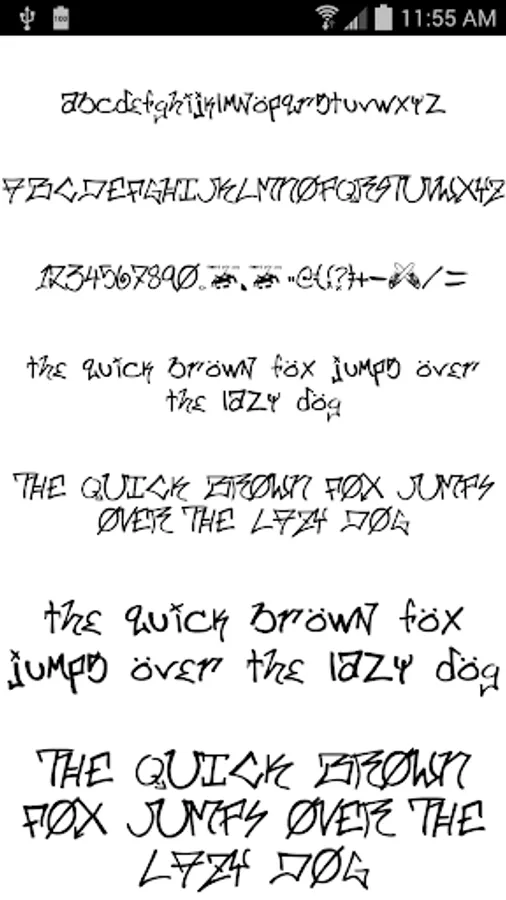 100 11:55 AM
abcdefghijklmnöpqrstuvwxyz
ABCDEFGHIJKLMNØPQRSTUVWXYZ
1234567890
the quick bröwn föx jumps över
the lazy dög
THE QUICK BRØWN FØX JUMPS
ØVER THE LAZY DØG
the quick bröwn föx
jumps över the lazy dög
THE QUICK BRØWN
FØX JUMPS ØVER THE
LAZY DØG